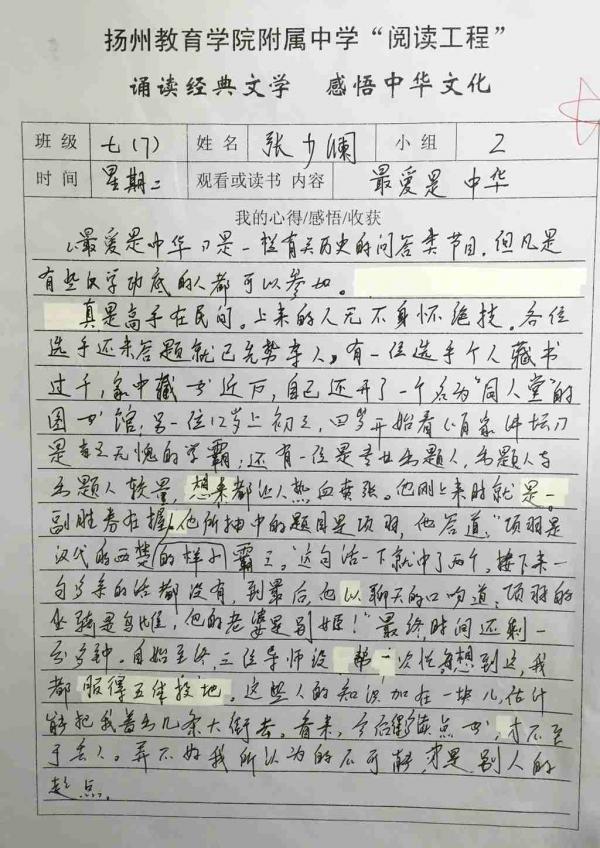 扬州教育学院附属中学“阅读工程”
诵读经典文学 感悟中华文化
班级 七(7) 姓名 张少澜 小组 2
时间 星期二 观看或读书 内容 最爱是中华
我的心得/感悟/收获
《最爱是中华》是一栏有关历史的问答类节目，但凡是
有些汉学功底的人都可以参加。
真是高手在民间。上来的人无不身怀绝技。各位
选手还未答题就已先势夺人，有一位选手个人藏书
过千，家中藏书近万，自己还开了一个名为“同人堂”的
图书馆；另一位12岁上初三，四岁开始看《百家讲坛》
是当之无愧的学霸；还有一位是专业出题人，出题人与
出题人较量，想来都让人热血贲张。他刚上来时就是一
副胜券在握，他所抽中的题目是项羽，他答道：“项羽是
汉代的西楚的样刊霸王。”这句话一下就中了两个，接下来一
句多余的话都没有，到最后，他以聊天的口吻道：“项羽的
坐骑是乌骓，他的老婆是别姬！”最终时间还剩一
分多钟。自始至终，三位导师没帮一次忙，每想到这，我
都服得五体投地。这些人的知识加在一块儿，估计
能把我甩出几条大街去。看来，今后得读点书，才不至
于丢人。弄不好我所认为的不可能，才是别人的
起点。